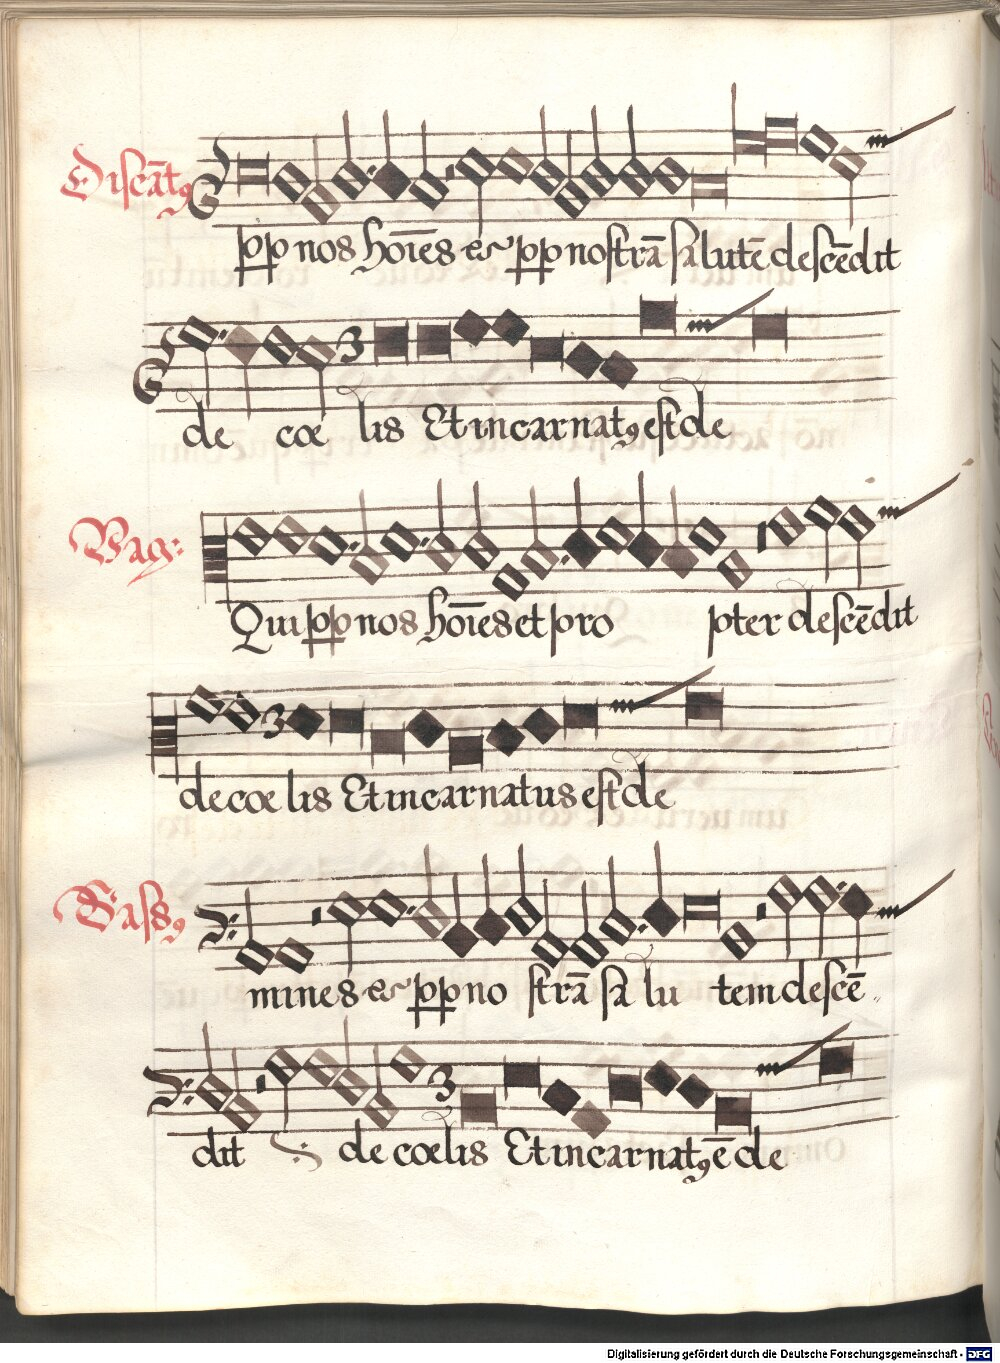 Discāt9
pp nos hoīes et pp nostrā salutē descēdit
de coe lis Et incarnat9 est de
Vag:
Qui pp nos hoīes et pro pter descēdit
de coe lis Et incarnatus est de
Bass9
mines et pp no strā sa lu tem descē
dit de coelis Et incarnat9 ē de
Digitalisierung gefördert durch die Deutsche Forschungsgemeinschaft - DFG